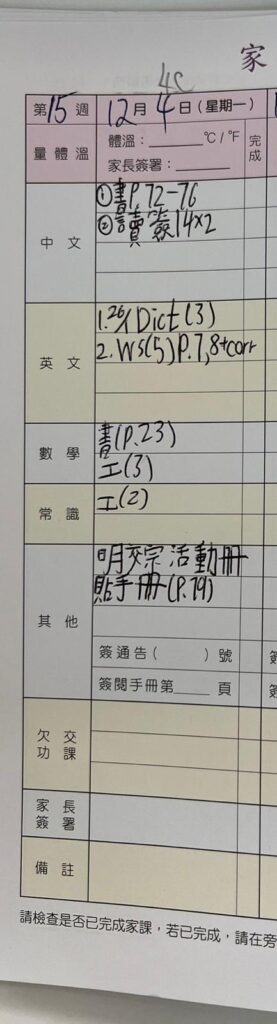 家
4C
第15週 12月4日(星期一)
量體溫 體溫：______℃/℉ 完成
家長簽署：______
中文 ①書P.72-76
②讀簽14×2
英文 1. 26/1 Dict(3)
2. WS(5)P.7,8+corr
數學 書(P.23)
工(3)
常識 工(2)
其他 明交宗活動冊
貼手冊(P.79)
簽通告( )號
簽閱手冊第____頁
欠交功課
家長簽署
備註
請檢查是否已完成家課，若已完成，請在旁